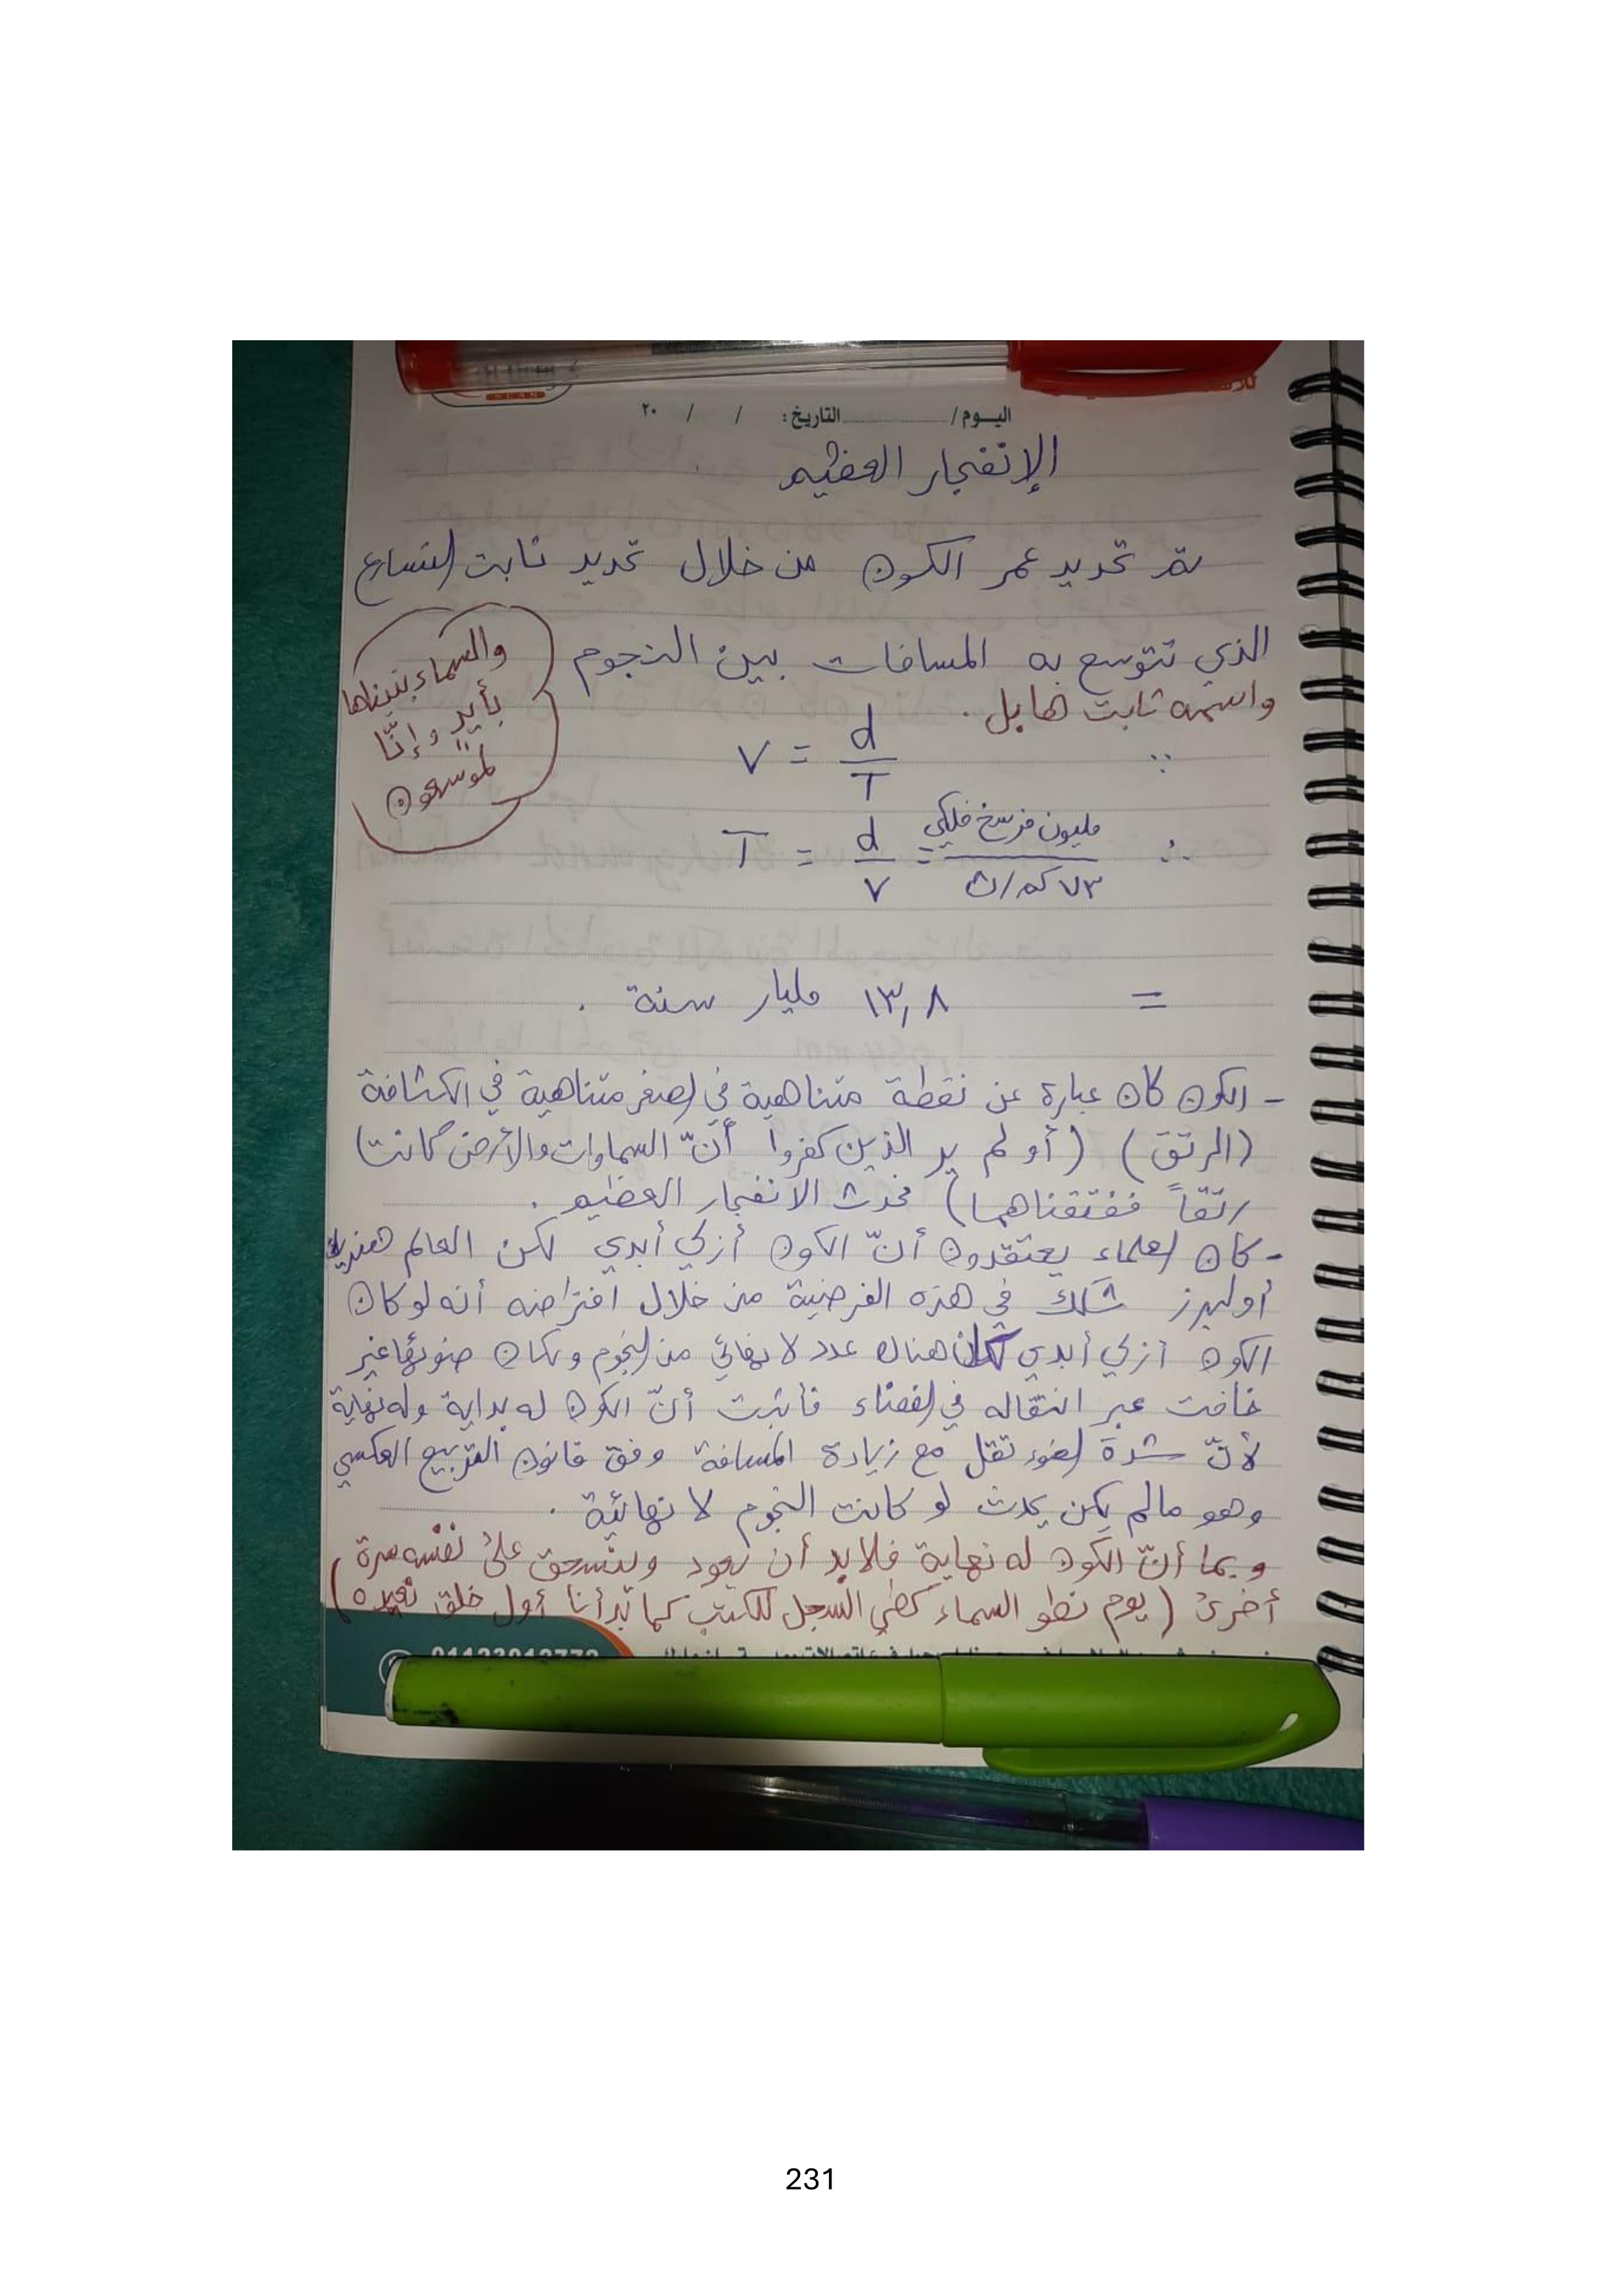 اليوم / التاريخ: / / ٢٠
الإنفجار العظيم
تم تحديد عمر الكون من خلال تحديد ثابت التسارع
الذي تتوسع به المسافات بين النجوم
واسمه ثابت هابل.
والسماء بنيناها
بأييد وإنّا
لموسعون
∵ V = d / T
∴ T = d / V = مليون فرسخ فلكي / ٧٣ كم/ث
= ١٣,٨ مليار سنة.
- الكون كان عبارة عن نقطة متناهية في الصغر متناهية في الكثافة
(الرتق) (أو لم ير الذين كفروا أنّ السماوات والأرض كانتا
رتقاً ففتقناهما) فحدث الانفجار العظيم.
- كان العلماء يعتقدون أنّ الكون أزلي أبدي لكن العالم هنريك
أولبرز شكك في هذه الفرضية من خلال افتراضه أنه لو كان
الكون أزلي أبدي لكان هناك عدد لا نهائي من النجوم ولكان ضوئها غير
خافت عبر انتقاله في الفضاء فأثبت أنّ الكون له بداية وله نهاية
لأنّ شدة الضوء تقل مع زيادة المسافة وفق قانون التربيع العكسي
وهو مالم يكن يحدث لو كانت النجوم لا نهائية.
وبما أنّ الكون له نهاية فلابد أن يعود وينسحق على نفسه مرة
أخرى (يوم نطو السماء كطي السجل للكتب كما بدأنا أول خلق نعيده)
231